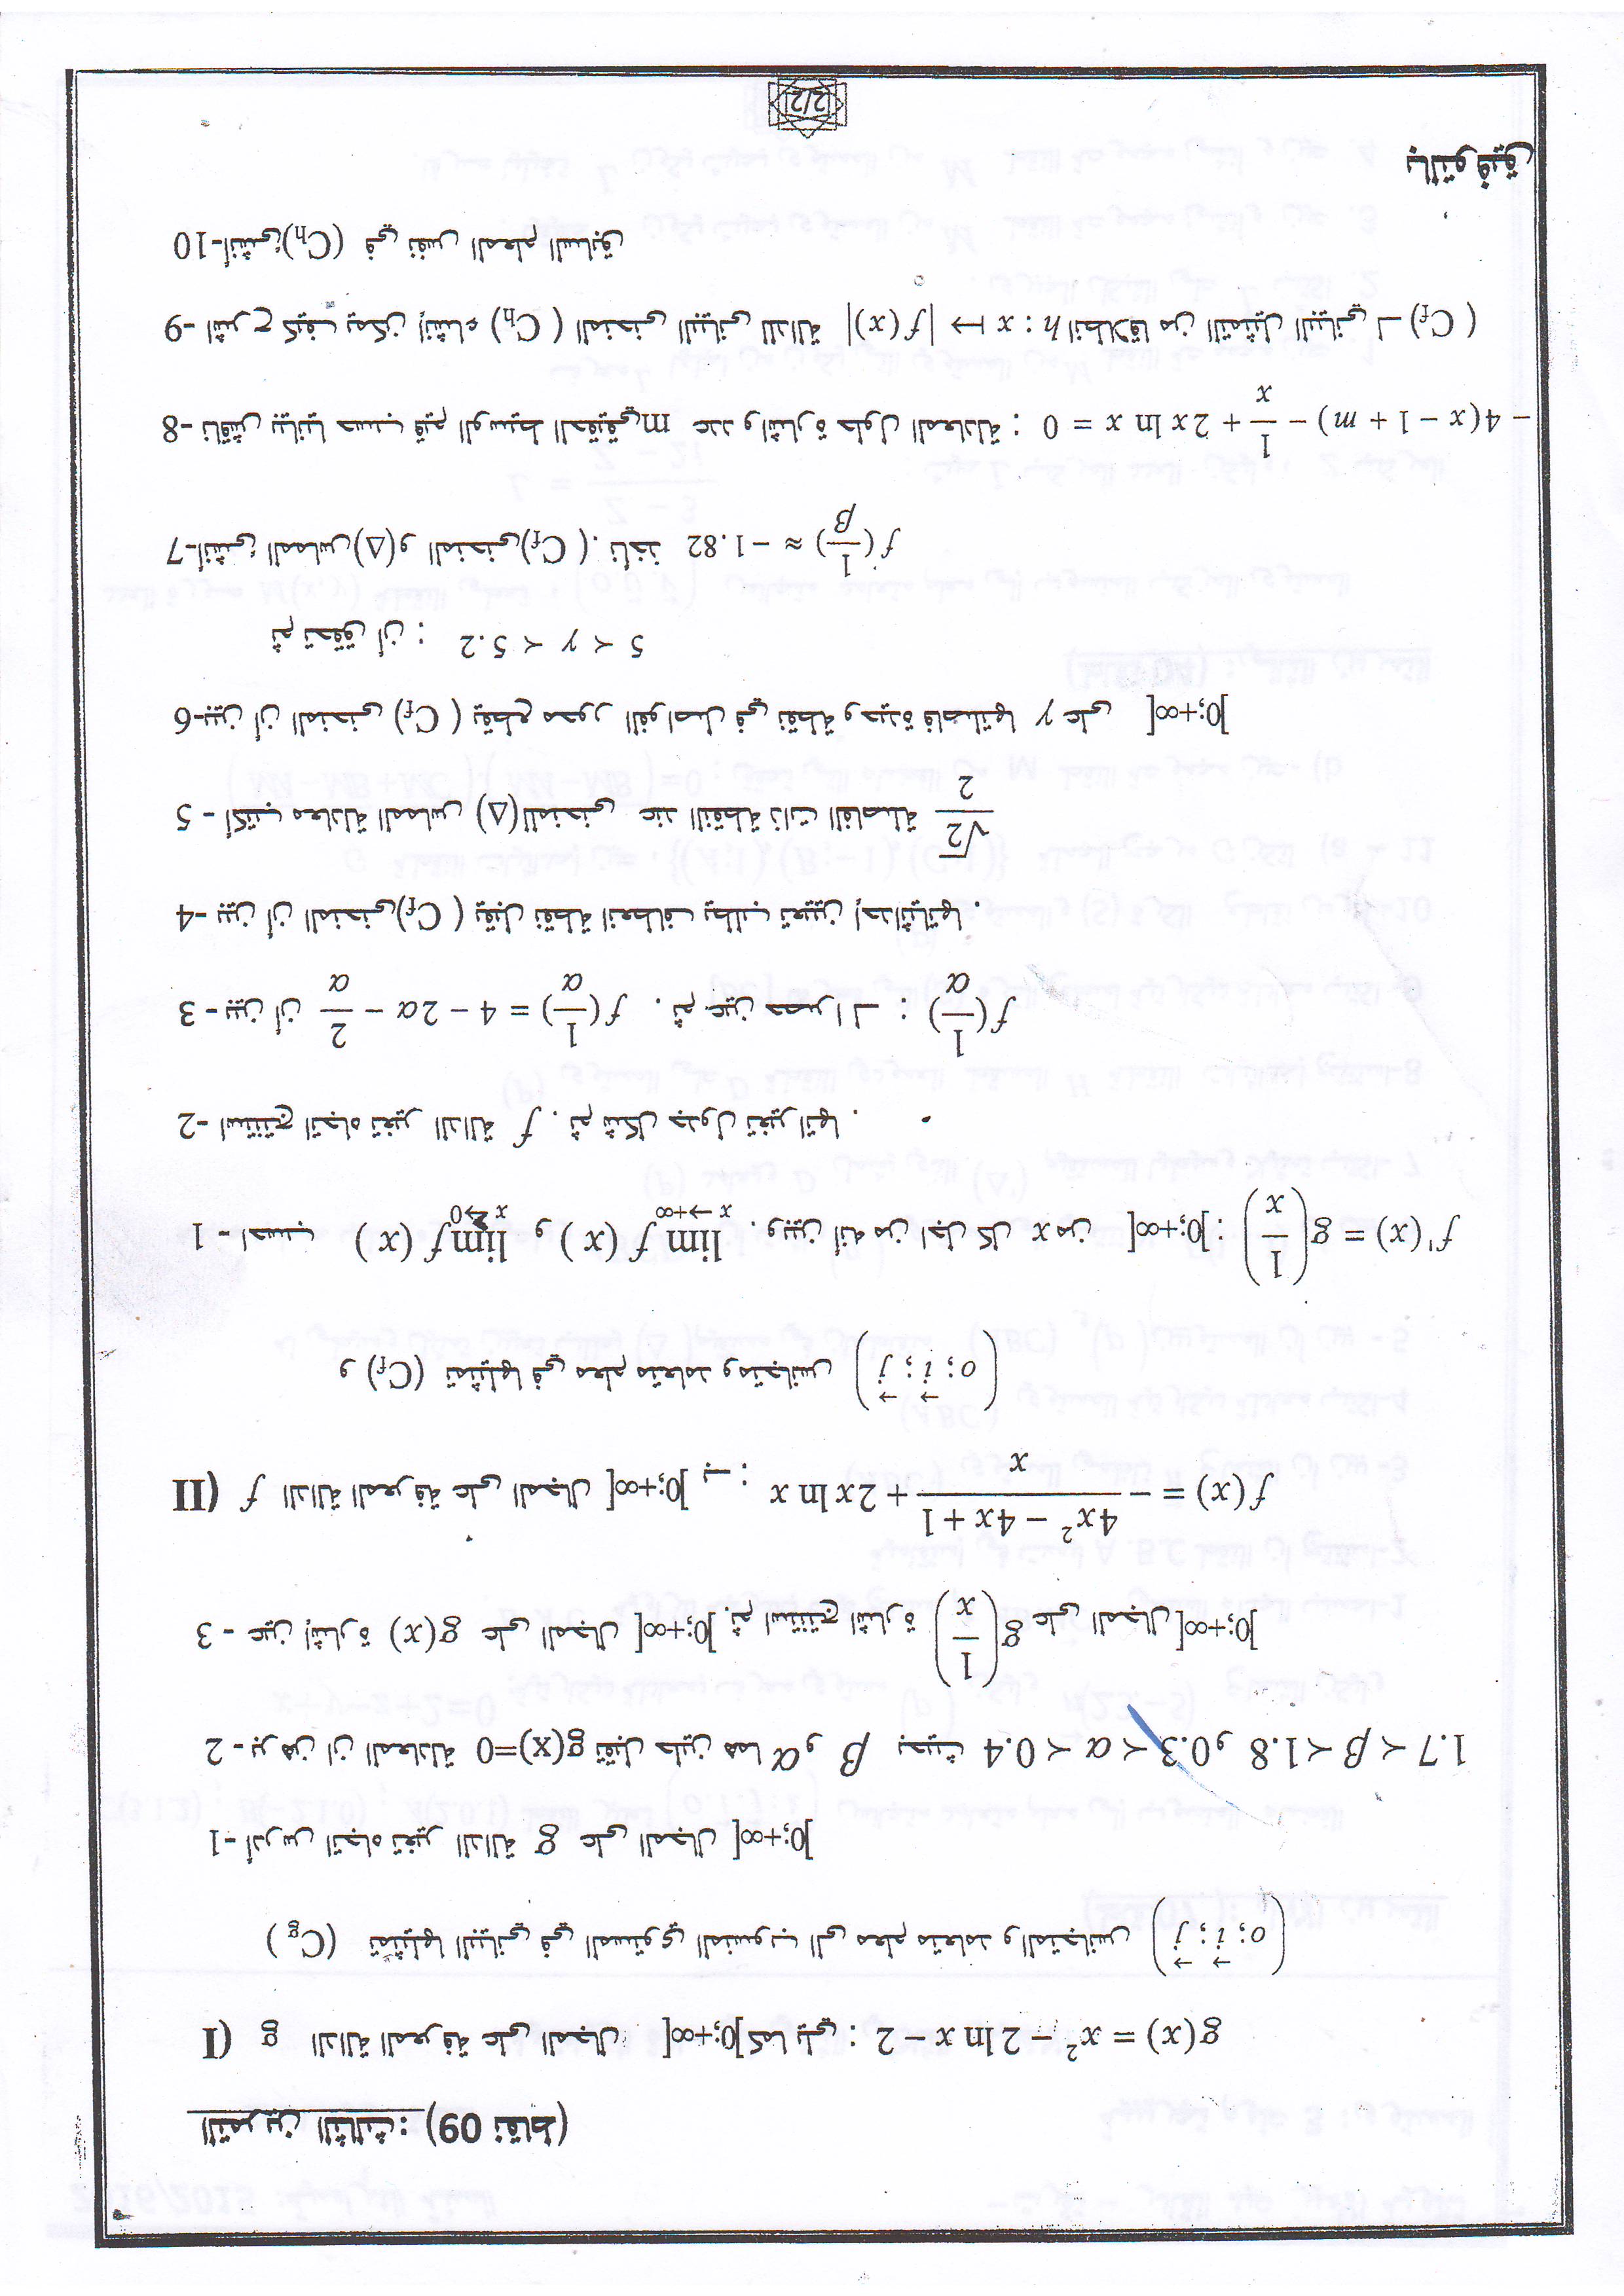 التمرين الثالث: (09 نقاط)
I) g الدالة المعرفة على المجال ]0;+∞[ كما يلي : g(x) = x² − 2 ln x − 2
(Cg) تمثيلها البياني في المستوي المنسوب الى معلم متعامد والمتجانس (o; i⃗; j⃗)
1- أدرس اتجاه تغير الدالة g على المجال ]0;+∞[
2 - برهن ان المعادلة g(x)=0 تقبل حلين هما α و β بحيث 0.3 < α < 0.4 و 1.7 < β < 1.8
3 - عين إشارة g(x) على المجال ]0;+∞[. ثم استنتج اشارة g(1/x) على المجال ]0;+∞[
II) f الدالة المعرفة على المجال ]0;+∞[ بـ : f(x) = − (4x² − 4x + 1)/x + 2x ln x
و (Cf) تمثيلها في معلم متعامد ومتجانس (o; i⃗; j⃗)
1 - احسب lim f(x) x→>0 و lim f(x) x→+∞ .وبين أنه من اجل كل x من ]0;+∞[ : f'(x) = g(1/x)
2- استنتج اتجاه تغير الدالة f . ثم شكل جدول تغيراتها .
3 - بين أن f(1/α) = 4 − 2α − 2/α . ثم عين حصرا لـ : f(1/α)
4- بين أن المنحنى (Cf) يقبل نقطة انعطاف يطلب تعيين إحداثياتها .
5 - أكتب معادلة المماس (Δ) للمنحنى عند النقطة ذات الفاصلة √2/2
6- بين أن المنحنى (Cf) يقطع محور الفواصل في نقطة وحيدة فاصلتها γ على ]0;+∞[
ثم تحقق أن : 5 < γ < 5.2
7- أنشئ المماس (Δ) و المنحنى (Cf) . نأخذ f(1/β) ≈ −1.82
8- ناقش بيانيا حسب قيم الوسيط الحقيقي m عدد واشارة حلول المعادلة : − 4(x − 1 + m) − 1/x + 2x ln x = 0
9- اشرح كيف يمكن إنشاء (Ch) المنحنى البياني للدالة h : x ↦ |f(x)| انطلاقا من التمثيل البياني لـ (Cf)
10- أنشئ (Ch) في نفس المعلم السابق
بالتوفيق
2/2